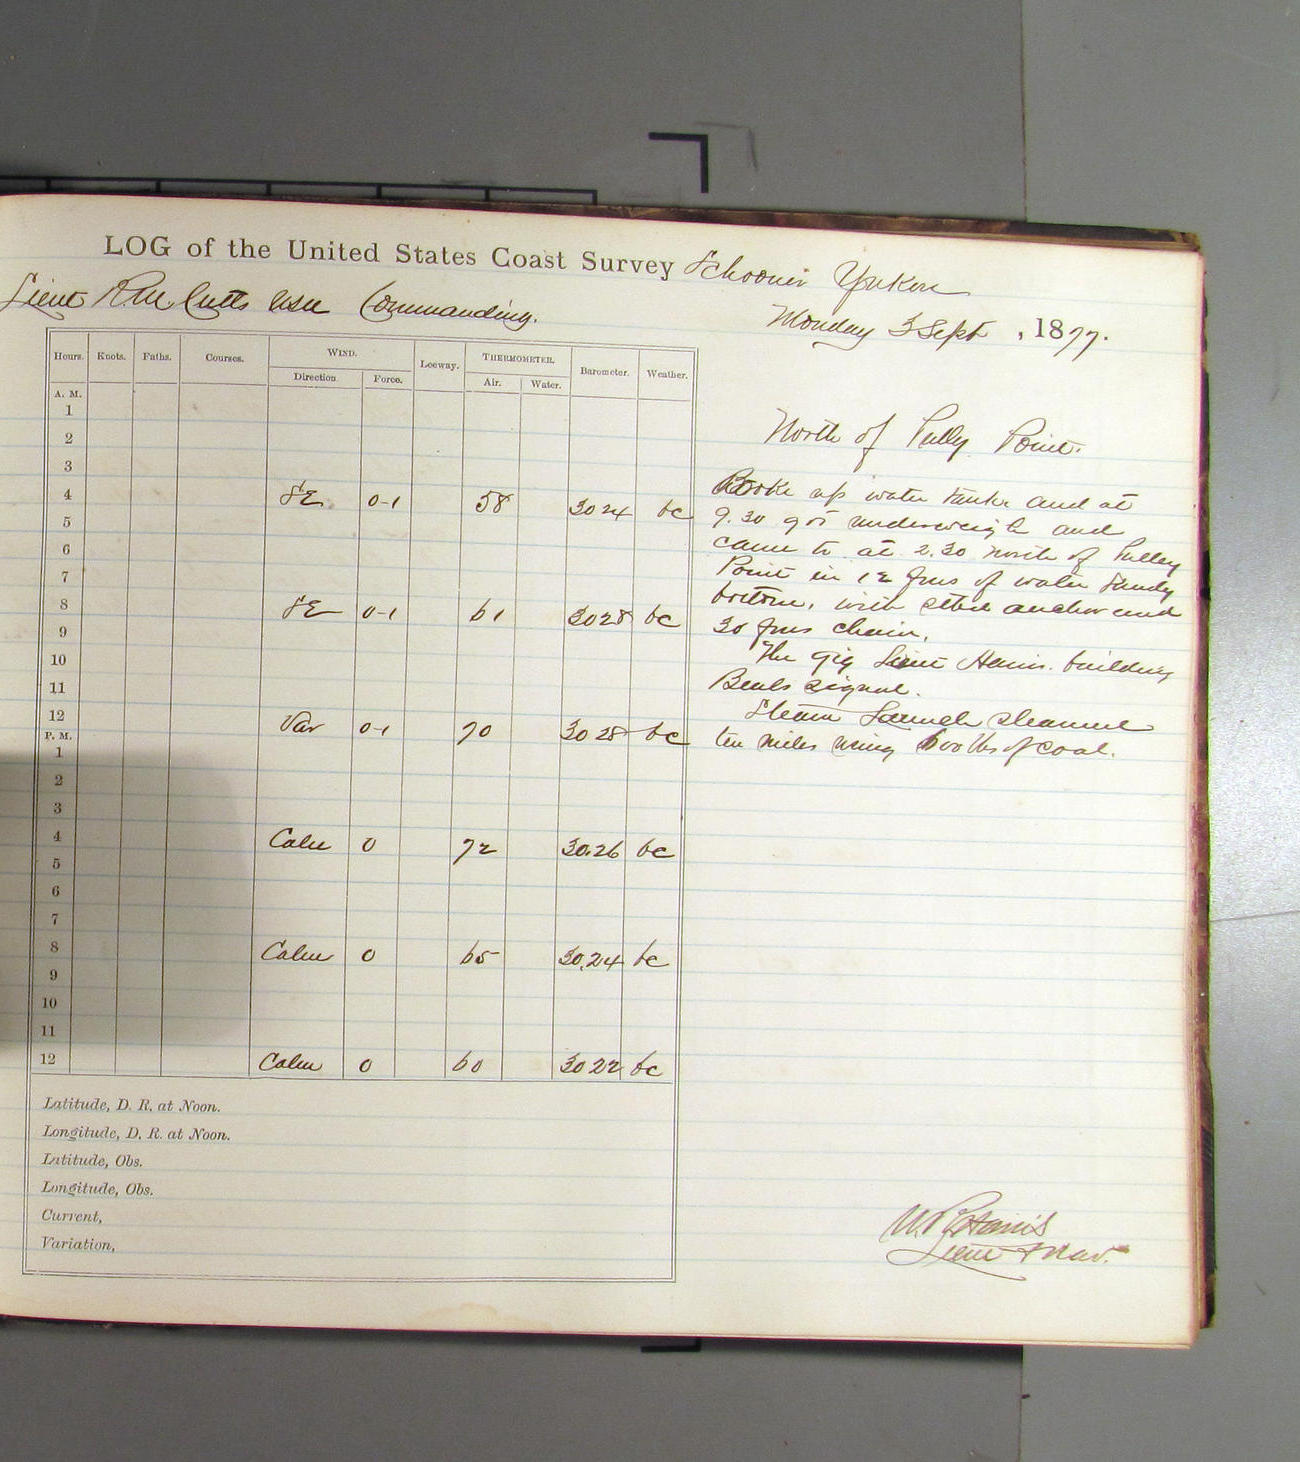 LOG of the United States Coast Survey Schooner Yukon
Lieut R M Cutts USN Commanding.
Monday 3 Sept , 1877.
Hours. Knots. Faths. Courses. WIND. Leeway. THERMOMETER. Barometer. Weather.
Direction. Force. Air. Water.
A. M.
1
2
3
4 SE 0-1 58 30 24 bc
5
6
7
8 SE 0-1 61 30 28 bc
9
10
11
12 Var 0-1 70 30 28 bc
P. M.
1
2
3
4 Calm 0 72 30.26 bc
5
6
7
8 Calm 0 65 30.24 bc
9
10
11
12 Calm 0 60 30 22 bc
Latitude, D. R. at Noon.
Longitude, D. R. at Noon.
Latitude, Obs.
Longitude, Obs.
Current,
Variation,
North of Pully Point.
Broke up water tanks and at
9.30 got underweigh and
came to at 2.30 north of Pulley
Point in 12 fms of water Sandy
bottom, with anchor and
30 fms chain.
The gig Lieut Harris. building
Beals signal.
Steam Launch steamed
ten miles using 600 lbs of coal.
Harris
Lieut Nav.